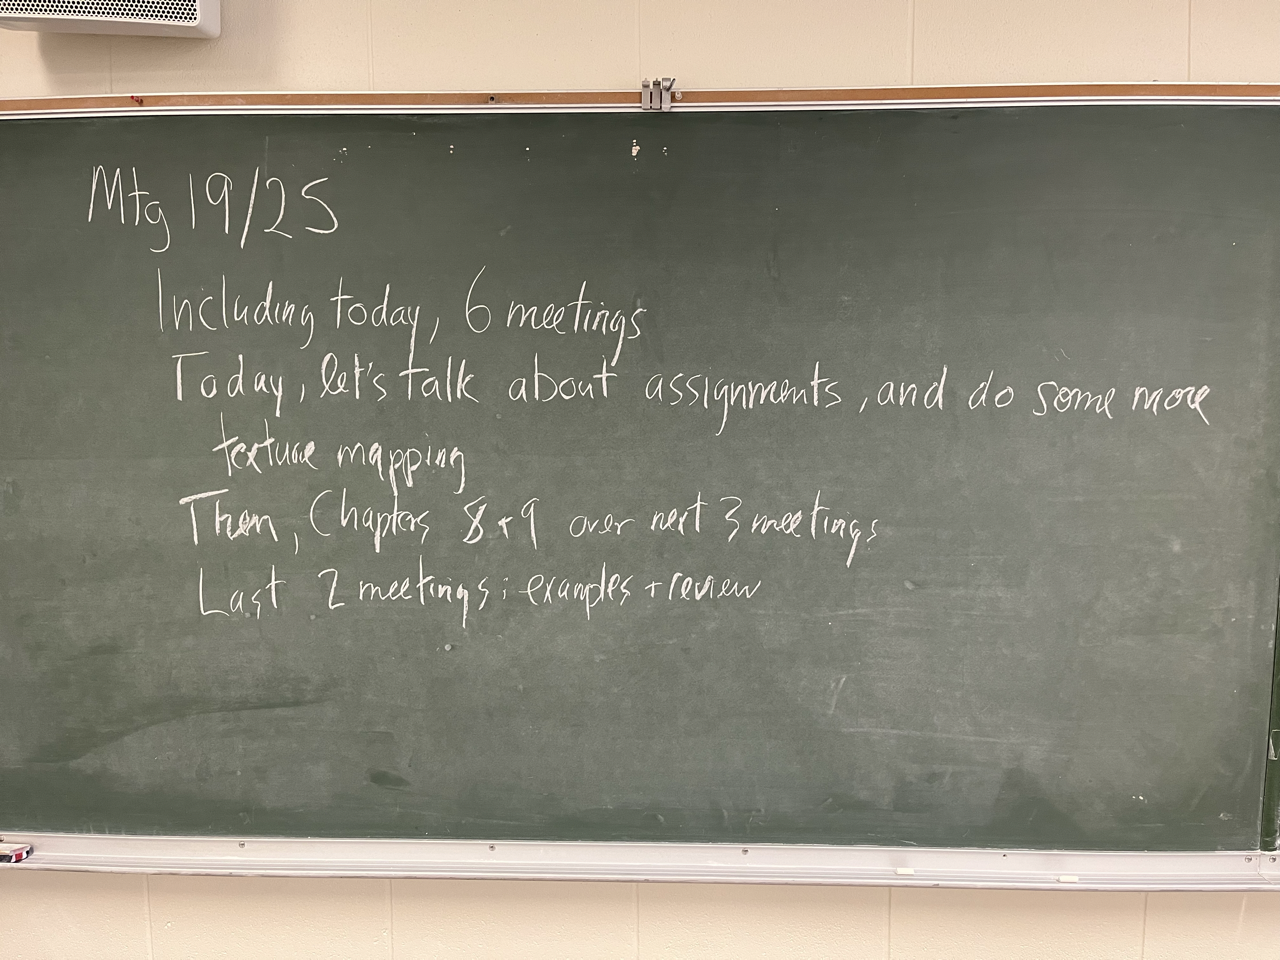 Mtg 19/25
Including today, 6 meetings
Today, let's talk about assignments, and do some more
texture mapping
Then, Chapters 8+9 over next 3 meetings
Last 2 meetings: examples + review